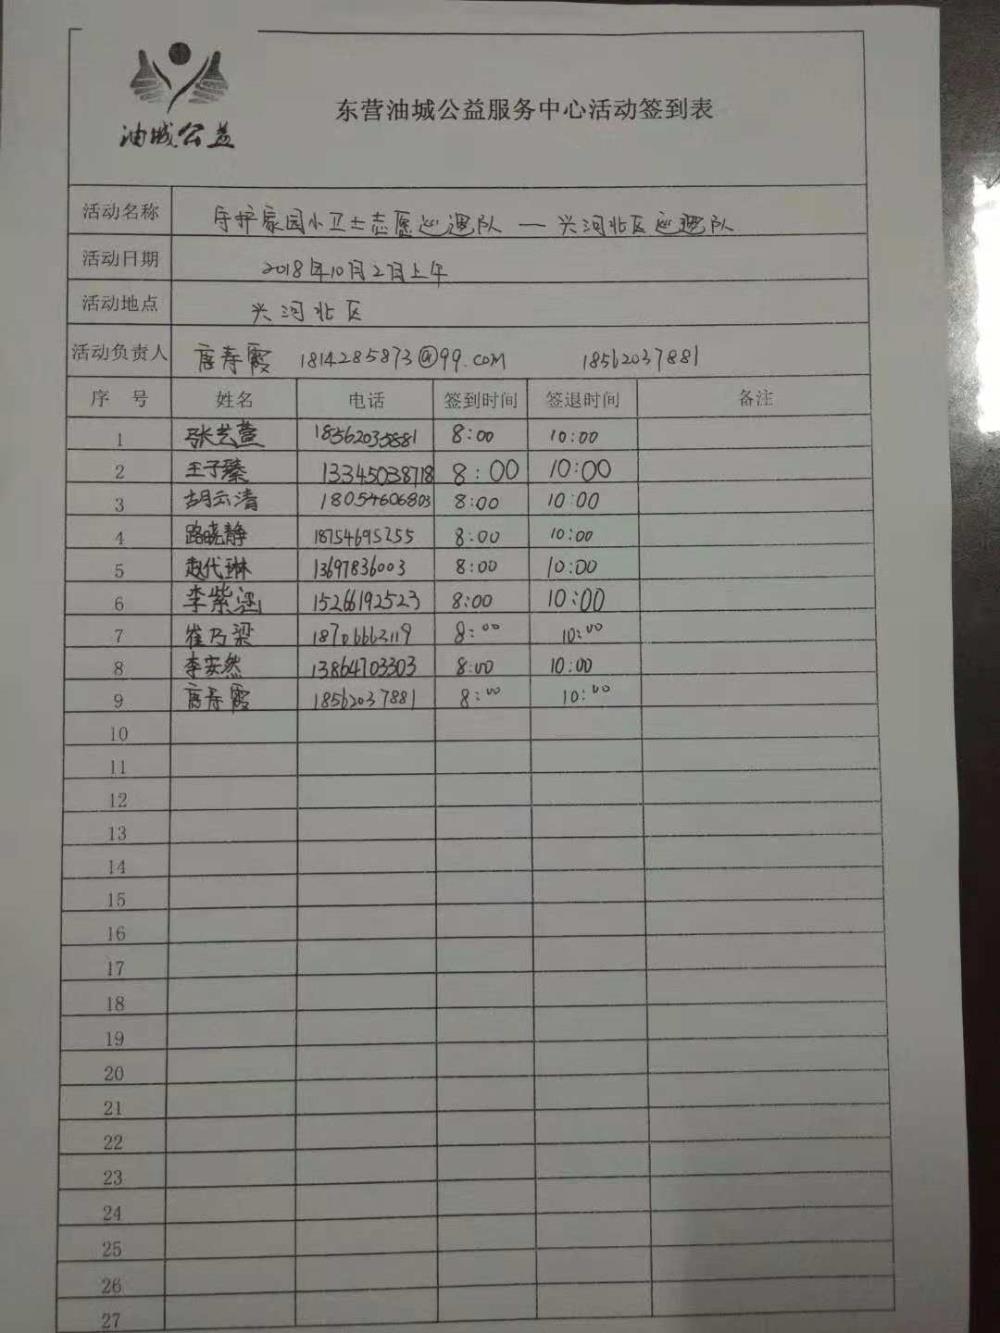 油城公益
东营油城公益服务中心活动签到表
活动名称 守护家园小卫士志愿巡逻队 — 兴河北区巡逻队
活动日期 2018年10月2日上午
活动地点 兴河北区
活动负责人 唐寿霞 1814285873@99.com 18562037881
序 号 姓名 电话 签到时间 签退时间 备注
1 张艺萱 18562035881 8:00 10:00
2 王子臻 13345038718 8:00 10:00
3 胡云清 18054606803 8:00 10:00
4 路晓静 18754695255 8:00 10:00
5 赵代琳 13697836003 8:00 10:00
6 李紫涵 15266192523 8:00 10:00
7 崔乃梁 18706663119 8:00 10:00
8 李安然 13864703303 8:00 10:00
9 唐寿霞 18562037881 8:00 10:00
10
11
12
13
14
15
16
17
18
19
20
21
22
23
24
25
26
27